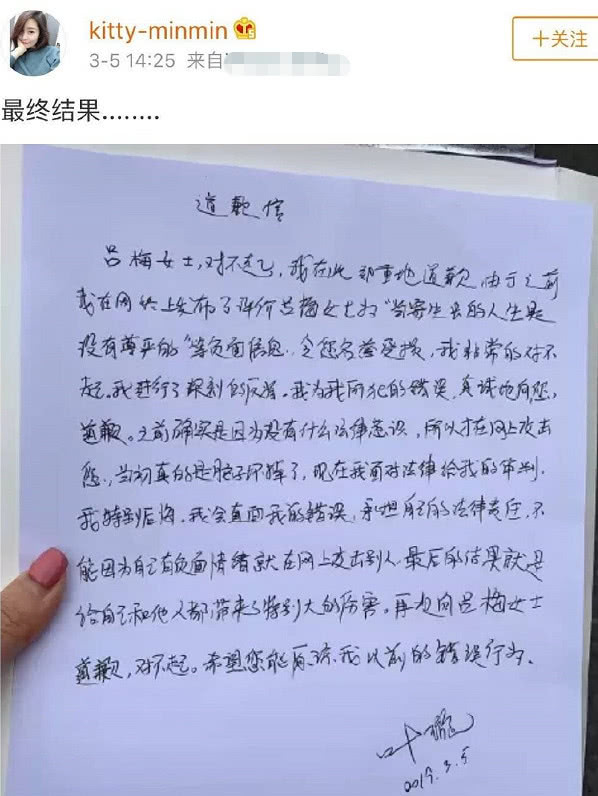 kitty-minmin
3-5 14:25 来自
+关注
最终结果........
道歉信
吕梅女士,对不起,我在此郑重地道歉由于之前
我在网络上发布了评价吕梅女士为“当寄生虫的人生是
没有尊严的”等负面信息,令您名誉受损,我非常的对不
起。我进行了深刻的反省。我为我所犯的错误,真诚地向您,
道歉。之前确实是因为没有什么法律意识,所以才在网上攻击
您,当初真的是脑子坏掉了,现在我面对法律给我的审判.
我特别后悔.我会直面我的错误,承担自己的法律责任,不
能因为自己有负面情绪就在网上攻击别人.最后的结果就是
给自己和他人都带来了特别大的伤害。再次向吕梅女士
道歉,对不起。希望您能原谅我以前的错误行为.
叶璇
2019.3.5